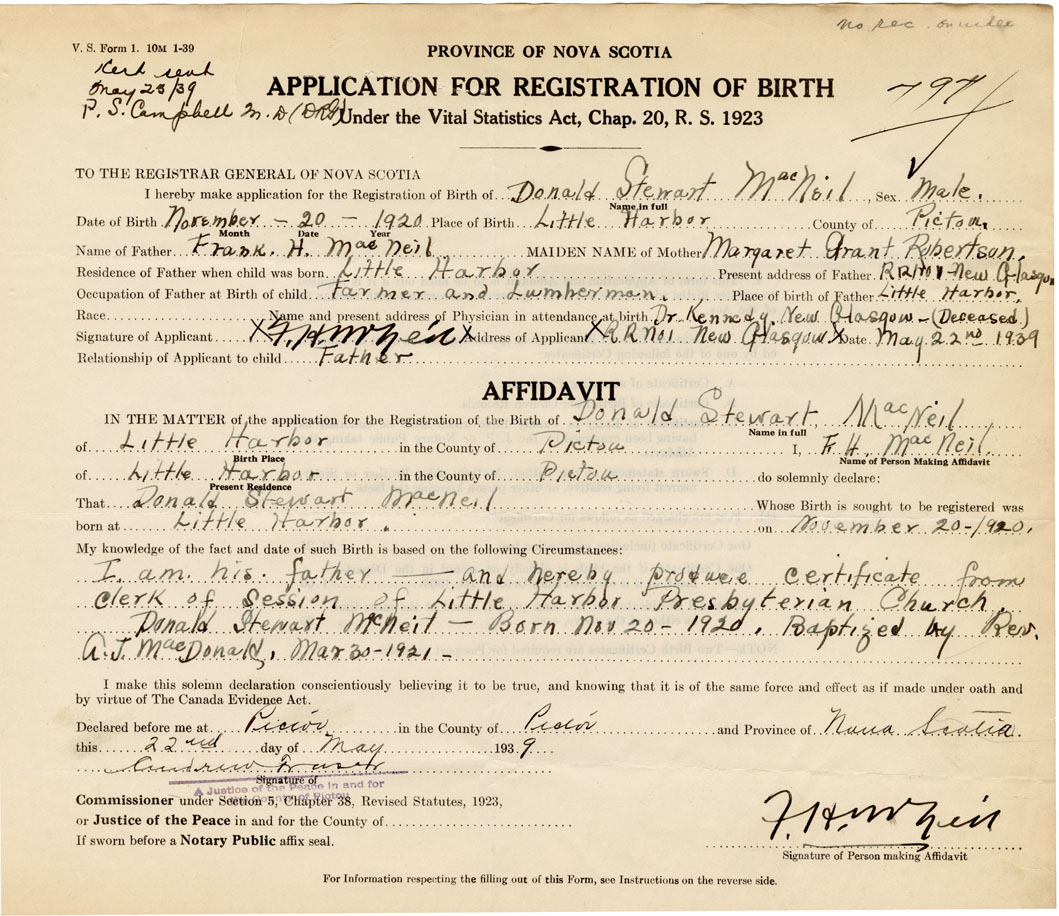 no rec. on index
V. S. Form 1. 10M 1-39
PROVINCE OF NOVA SCOTIA
sent
May 23/39
P. S. Campbell M. D (DRG)
APPLICATION FOR REGISTRATION OF BIRTH
797
Under the Vital Statistics Act, Chap. 20, R. S. 1923
TO THE REGISTRAR GENERAL OF NOVA SCOTIA
I hereby make application for the Registration of Birth of Donald Stewart MacNeil Sex Male.
Name in full
Date of Birth November - 20 - 1920 Place of Birth Little Harbor County of Pictou.
Month Date Year
Name of Father Frank. H. MacNeil MAIDEN NAME of Mother Margaret Grant Robertson.
Residence of Father when child was born Little Harbor Present address of Father RR No1 New Glasgow
Occupation of Father at Birth of child Farmer and Lumberman. Place of birth of Father Little Harbor.
Race Name and present address of Physician in attendance at birth Dr. Kennedy, New Glasgow - (Deceased)
Signature of Applicant X F. H. McNeil X Address of Applicant X R.R No1 New Glasgow X Date May 22nd 1939
Relationship of Applicant to child Father
AFFIDAVIT
IN THE MATTER of the application for the Registration of the Birth of Donald Stewart MacNeil
Name in full
of Little Harbor in the County of Pictou I, F. H. MacNeil.
Birth Place Name of Person Making Affidavit
of Little Harbor in the County of Pictou do solemnly declare:
Present Residence
That Donald Stewart MacNeil Whose Birth is sought to be registered was
born at Little Harbor. on November 20-1920.
My knowledge of the fact and date of such Birth is based on the following Circumstances:
I am his father — and hereby produce certificate from
clerk of Session of Little Harbor Presbyterian Church.
Donald Stewart McNeil - Born Nov 20- 1920. Baptized by Rev.
A.J. MacDonald, Mar 30-1921-
I make this solemn declaration conscientiously believing it to be true, and knowing that it is of the same force and effect as if made under oath and
by virtue of The Canada Evidence Act.
Declared before me at Pictou in the County of Pictou and Province of Nova Scotia
this 22nd day of May 1939.
Andrew Fraser
Signature of
A Justice of the Peace in and for
the County of Pictou
Commissioner under Section 5, Chapter 38, Revised Statutes, 1923,
or Justice of the Peace in and for the County of
F. H. McNeil
If sworn before a Notary Public affix seal.
Signature of Person making Affidavit
For Information respecting the filling out of this Form, see Instructions on the reverse side.